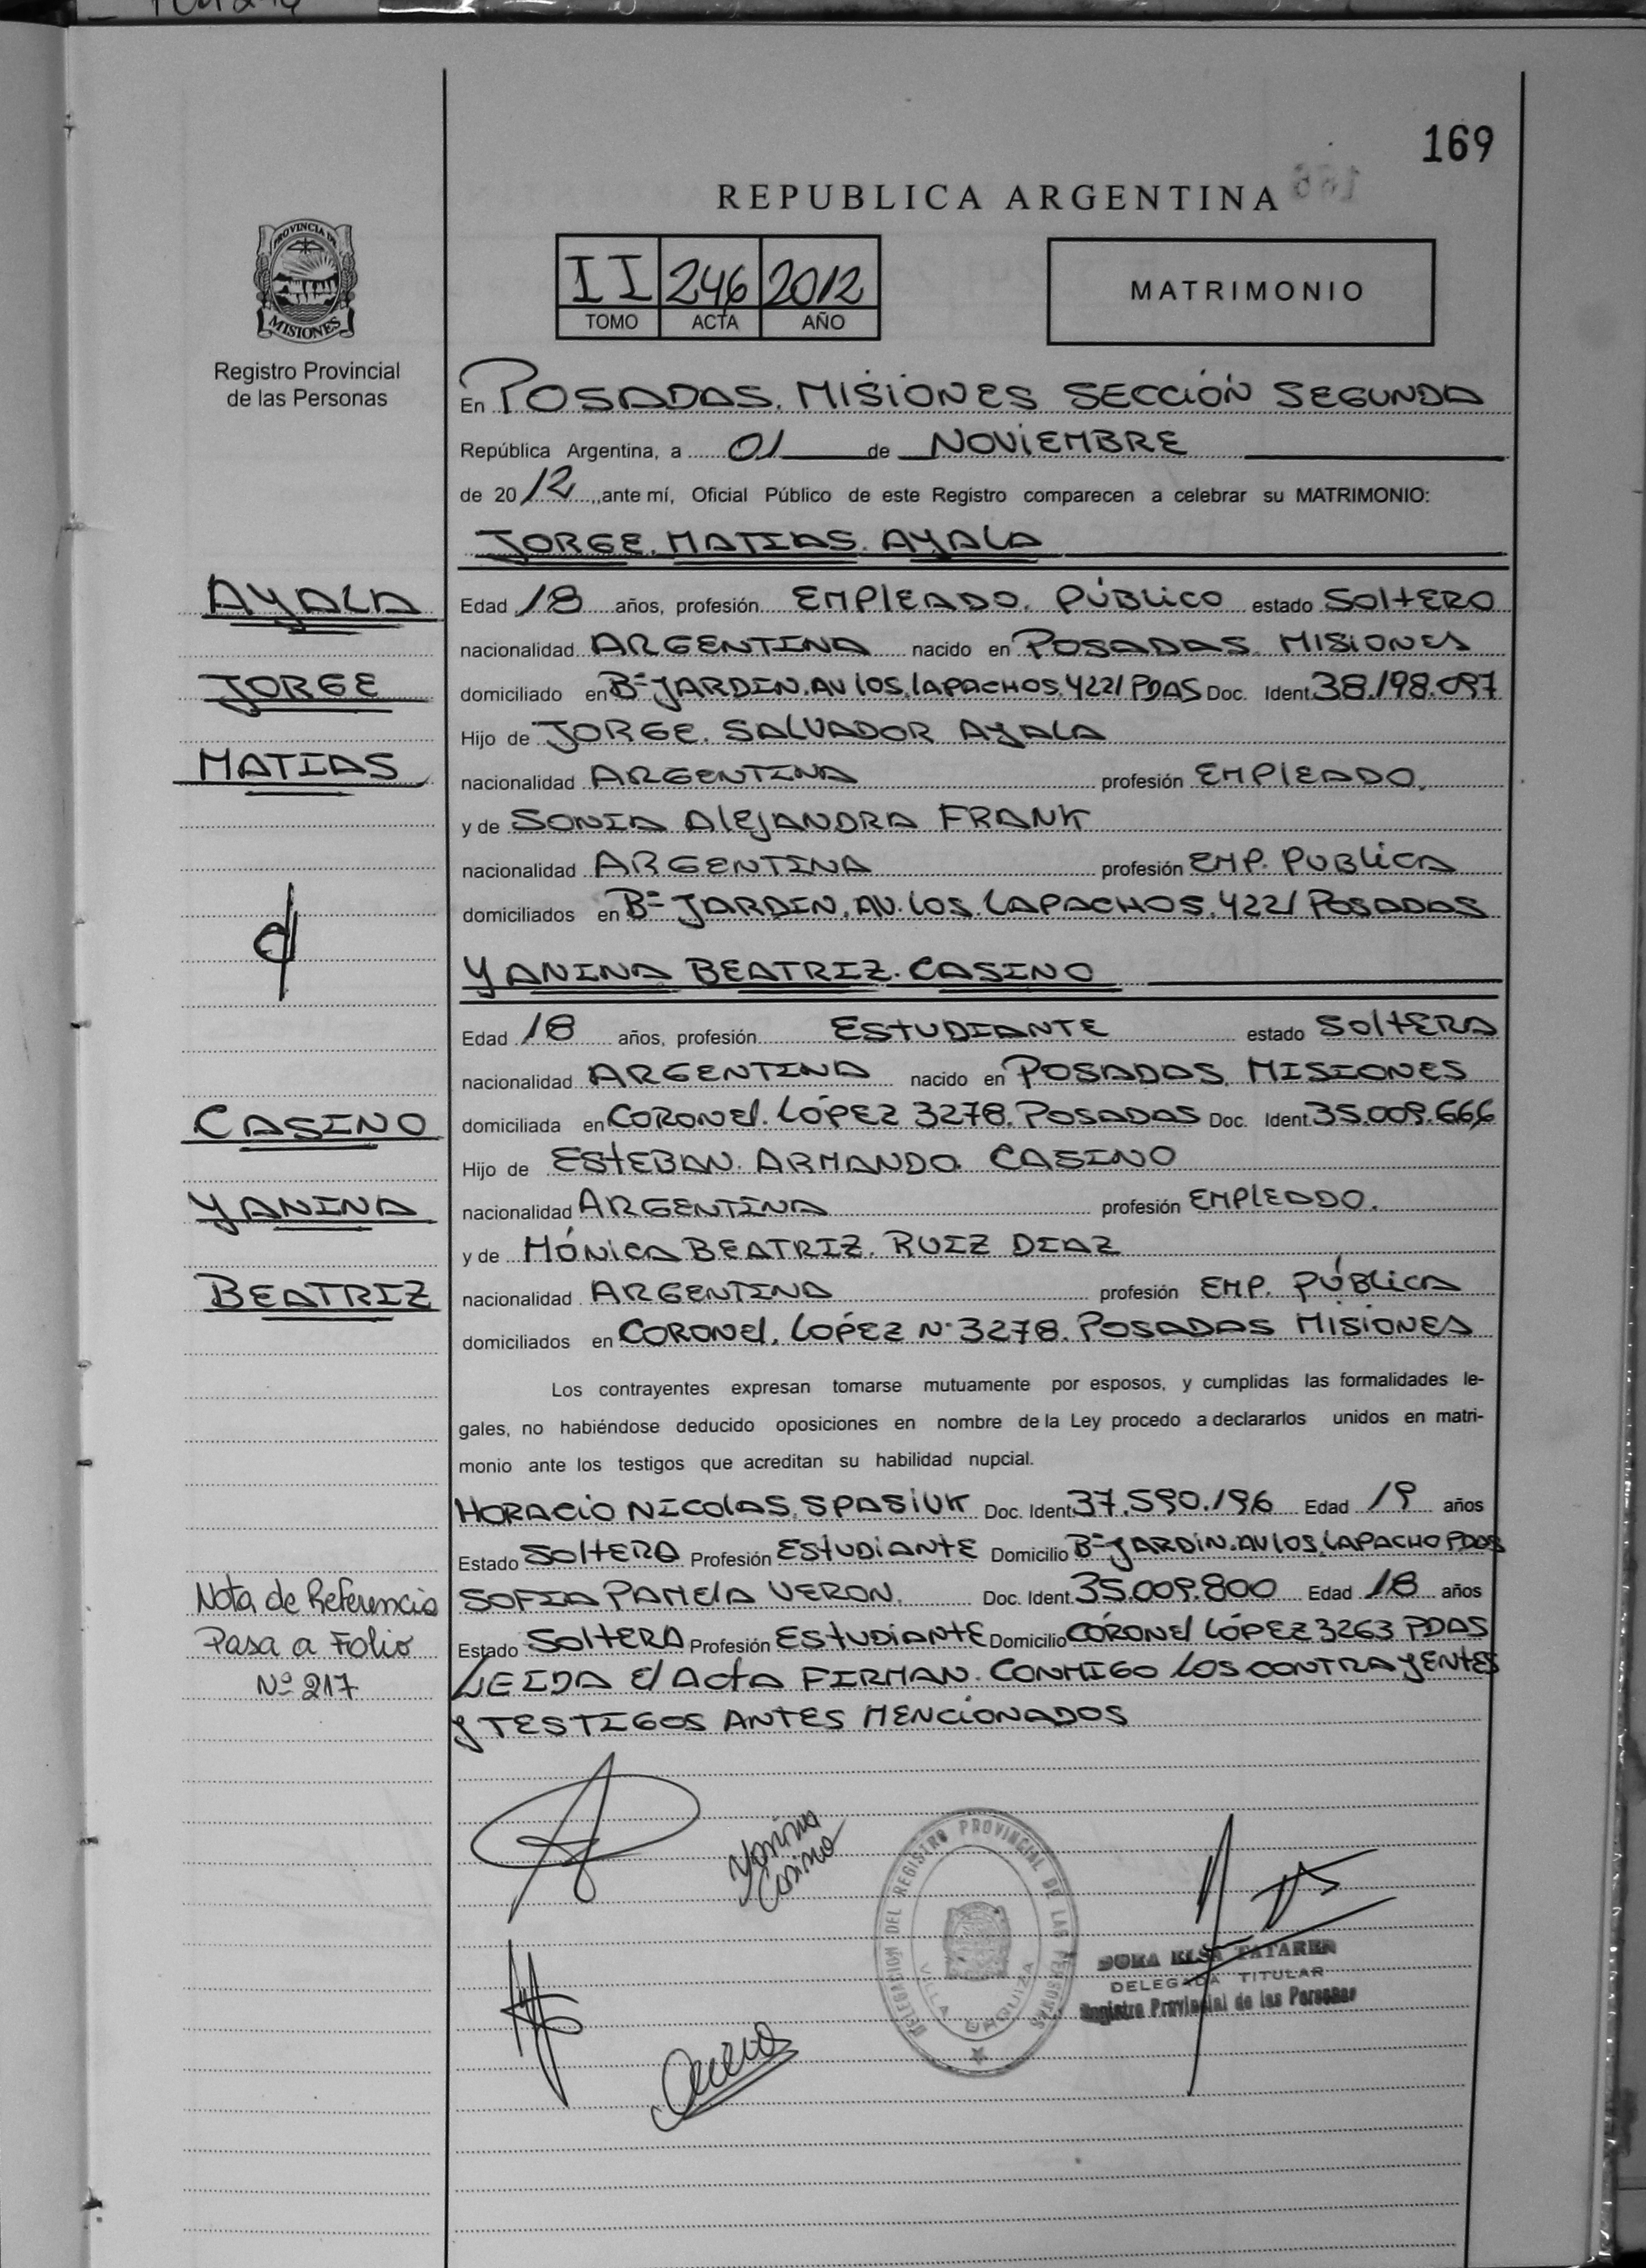 169
REPUBLICA ARGENTINA
PROVINCIA DE
MISIONES
Registro Provincial
de las Personas
II 246 2012
TOMO ACTA AÑO
MATRIMONIO
En POSADAS. MISIONES SECCIÓN SEGUNDA
República Argentina, a 01 de NOVIEMBRE
de 2012, ante mí, Oficial Público de este Registro comparecen a celebrar su MATRIMONIO:
JORGE. MATIAS. AYALA
AYALA
Edad 18 años, profesión EMPLEADO. PÚBLICO estado SOLTERO
nacionalidad ARGENTINA nacido en POSADAS. MISIONES
JORGE
domiciliado en Bº JARDIN. AV LOS. LAPACHOS. 4221 PDAS Doc. Ident. 38.198.097
Hijo de JORGE. SALVADOR AYALA
MATIAS
nacionalidad ARGENTINA profesión EMPLEADO.
y de SONIA ALEJANDRA FRANK
nacionalidad ARGENTINA profesión EMP. PUBLICA
domiciliados en Bº JARDIN. AV. LOS. LAPACHOS. 4221 POSADAS
YANINA BEATRIZ. CASINO
Edad 18 años, profesión ESTUDIANTE estado SOLTERA
nacionalidad ARGENTINA nacido en POSADAS. MISIONES
CASINO
domiciliada en CORONEL. LÓPEZ 3278. POSADAS Doc. Ident. 35.009.666
Hijo de ESTEBAN. ARMANDO. CASINO
YANINA
nacionalidad ARGENTINA profesión EMPLEADO.
y de MÓNICA BEATRIZ. RUIZ DIAZ
BEATRIZ
nacionalidad ARGENTINA profesión EMP. PÚBLICA
domiciliados en CORONEL. LOPÉZ Nº 3278. POSADAS MISIONES
Los contrayentes expresan tomarse mutuamente por esposos, y cumplidas las formalidades le-
gales, no habiéndose deducido oposiciones en nombre de la Ley procedo a declararlos unidos en matri-
monio ante los testigos que acreditan su habilidad nupcial.
HORACIO NICOLAS. SPASIUK Doc. Ident. 37.590.196 Edad 19 años
Estado SOLTERO Profesión ESTUDIANTE Domicilio Bº JARDIN. AV LOS. LAPACHO PDAS
Nota de Referencia
Pasa a Folio
Nº 217
SOFIA PAMELA VERON. Doc. Ident. 35.009.800 Edad 18 años
Estado SOLTERA Profesión ESTUDIANTE Domicilio CORONEL LÓPEZ 3263 PDAS
LEIDA El ACTA FIRMAN. CONMIGO LOS CONTRAYENTES
Y TESTIGOS ANTES MENCIONADOS
Yanina
Casino
DELEGACION DEL REGISTRO PROVINCIAL DE LAS PERSONAS
VILLA URQUIZA
DORA ELSA TATAREN
DELEGADA TITULAR
Registro Provincial de las Personas